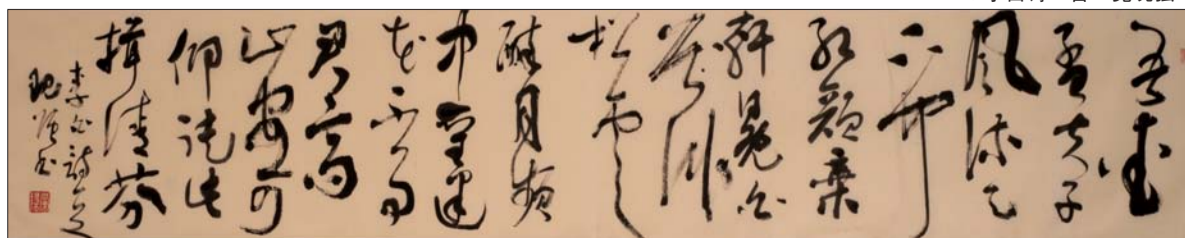 吾愛
孟夫子
風流天
下聞
紅顏棄
軒冕白
首臥
松雲
醉月頻
中聖迷
花不事
君高
山安可
仰徒此
揖清芬
李白詩